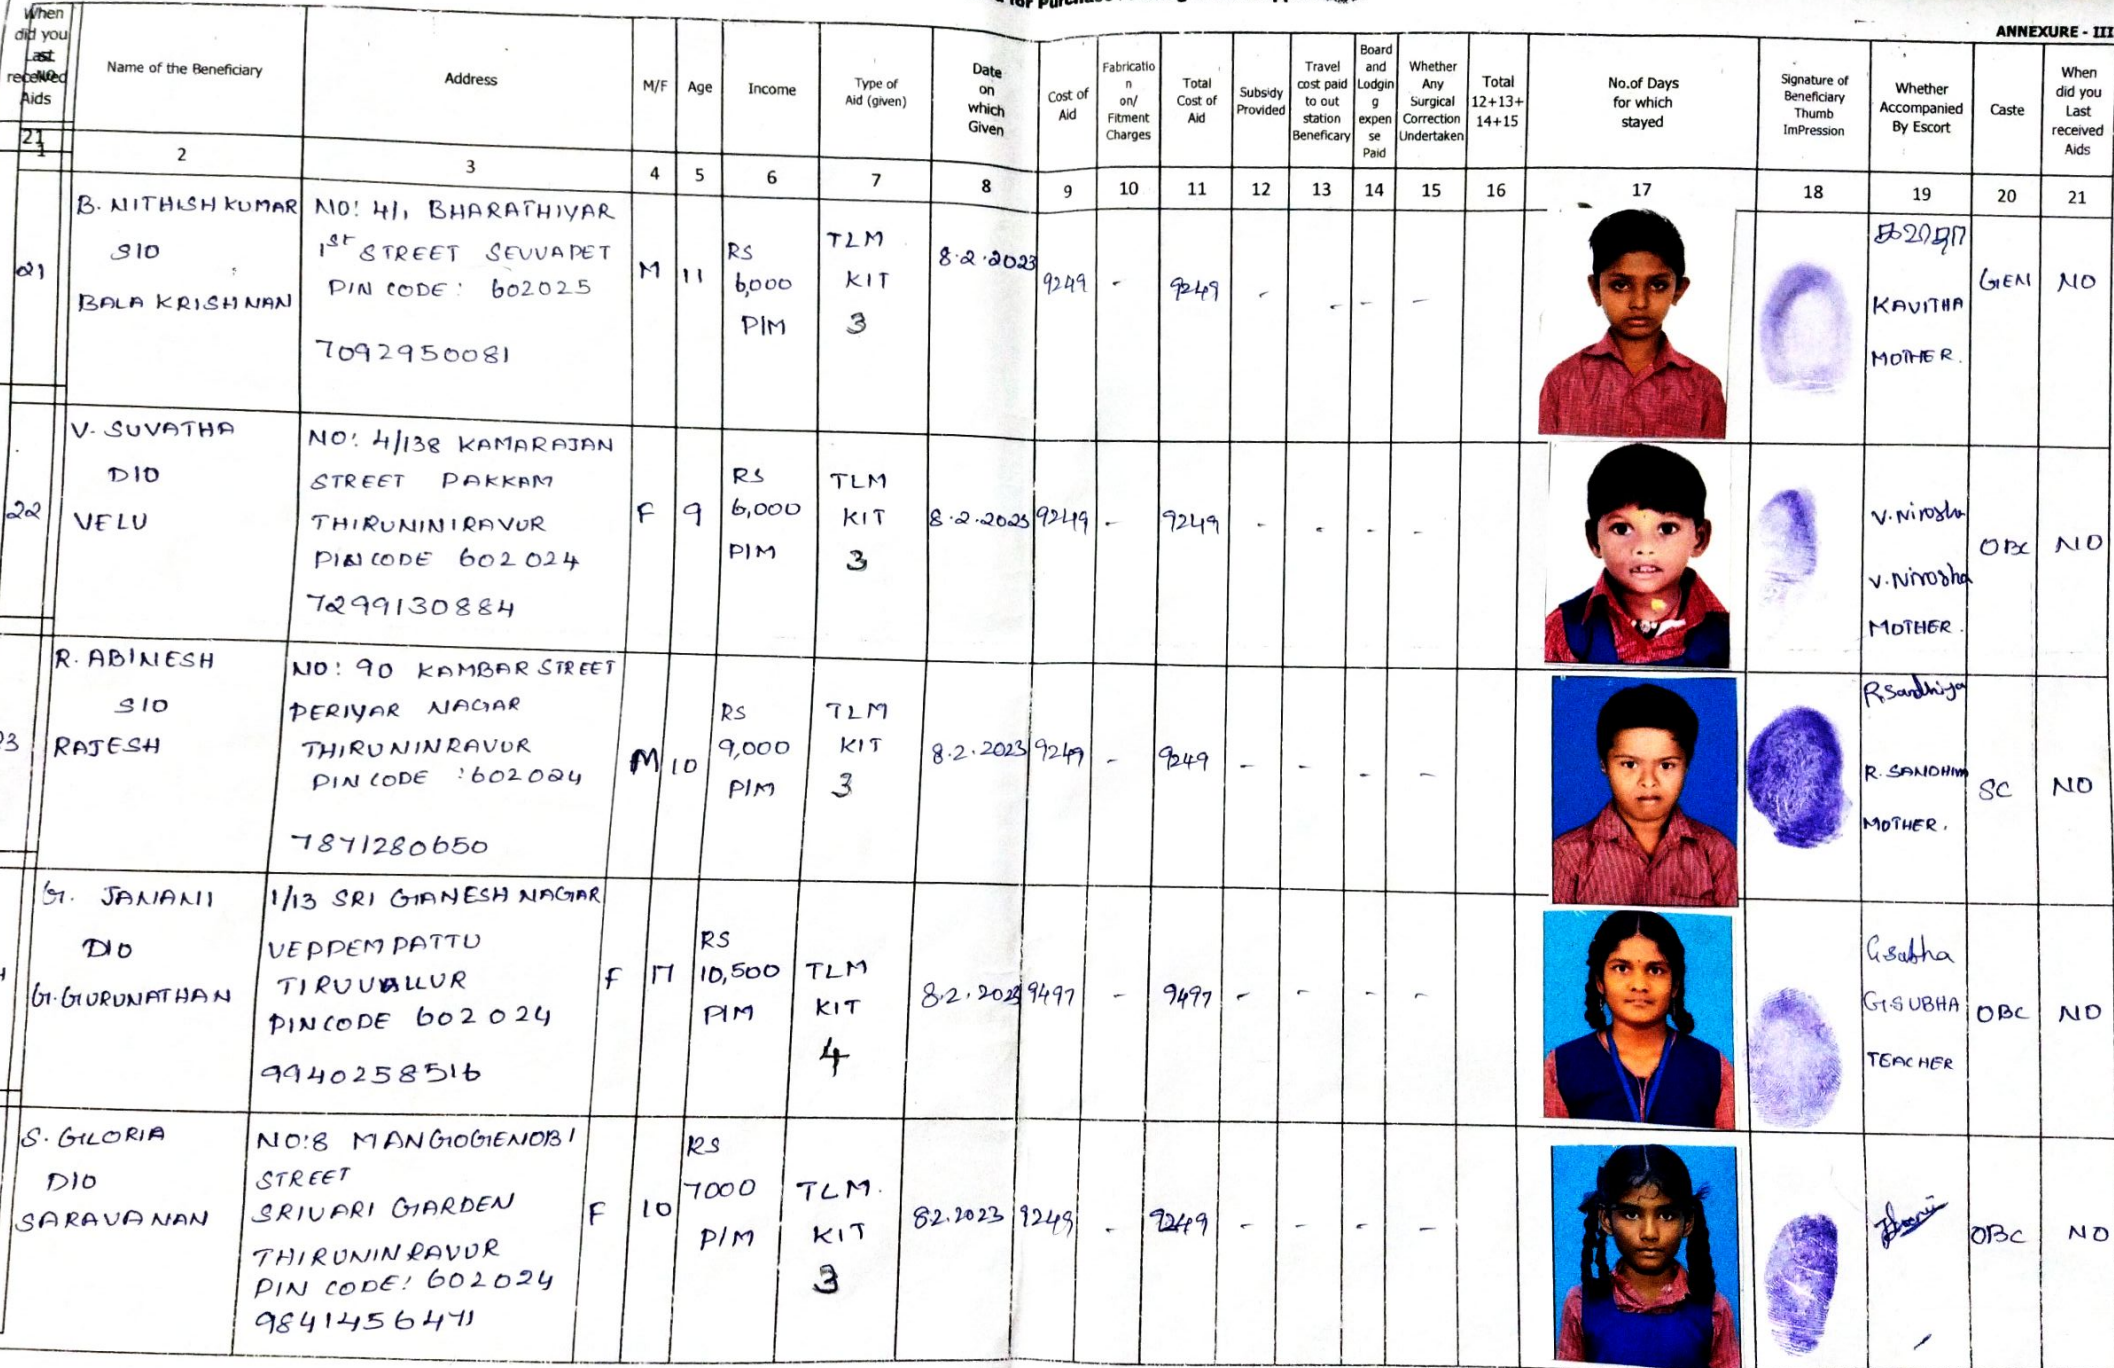 ANNEXURE - III
When did you Last received Aids
Name of the Beneficiary
Address
M/F
Age
Income
Type of Aid (given)
Date on which Given
Cost of Aid
Fabricatio n on/ Fitment Charges
Total Cost of Aid
Subsidy Provided
Travel cost paid to out station Beneficary
Board and Lodgin g expen se Paid
Whether Any Surgical Correction Undertaken
Total 12+13+ 14+15
No.of Days for which stayed
Signature of Beneficiary Thumb ImPression
Whether Accompanied By Escort
Caste
When did you Last received Aids
21 1 2 3 4 5 6 7 8 9 10 11 12 13 14 15 16 17 18 19 20 21
21
B. NITHISH KUMAR
S/O
BALA KRISHNAN
NO: 4/1 BHARATHIYAR
1st STREET SEVVAPET
PIN CODE: 602025
7092950081
M
11
RS
6,000
P/M
TLM
KIT
3
8.2.2023
9249
-
9249
-
-
-
-
கவிதா
KAVITHA
MOTHER.
GEN
NO
22
V. SUVATHA
D/O
VELU
NO: 4/138 KAMARAJAN
STREET PAKKAM
THIRUNINIRAVUR
PIN CODE 602024
7299130884
F
9
RS
6,000
P/M
TLM
KIT
3
8.2.2023
9249
-
9249
-
-
-
-
V. Nirosha
V. Nirosha
MOTHER.
OBC
NO
R. ABINESH
S/O
RAJESH
NO: 90 KAMBAR STREET
PERIYAR NAGAR
THIRUNINRAVUR
PIN CODE : 602024
7871280650
M
10
RS
9,000
P/M
TLM
KIT
3
8.2.2023
9249
-
9249
-
-
-
-
R Sandhiya
R. SANDHIYA
MOTHER.
SC
NO
G. JANANI
D/O
G. GURUNATHAN
1/13 SRI GANESH NAGAR
VEPPEMPATTU
TIRUVALLUR
PINCODE 602024
9940258516
F
17
RS
10,500
P/M
TLM
KIT
4
8.2.2023
9497
-
9497
-
-
-
-
G. Subha
G. SUBHA
TEACHER
OBC
NO
S. GLORIA
D/O
SARAVANAN
NO: 8
STREET
SRIVARI GARDEN
THIRUNINRAVUR
PIN CODE: 602024
9841456471
F
10
RS
7000
P/M
TLM.
KIT
3
8.2.2023
9249
-
9249
-
-
-
-
OBC
NO